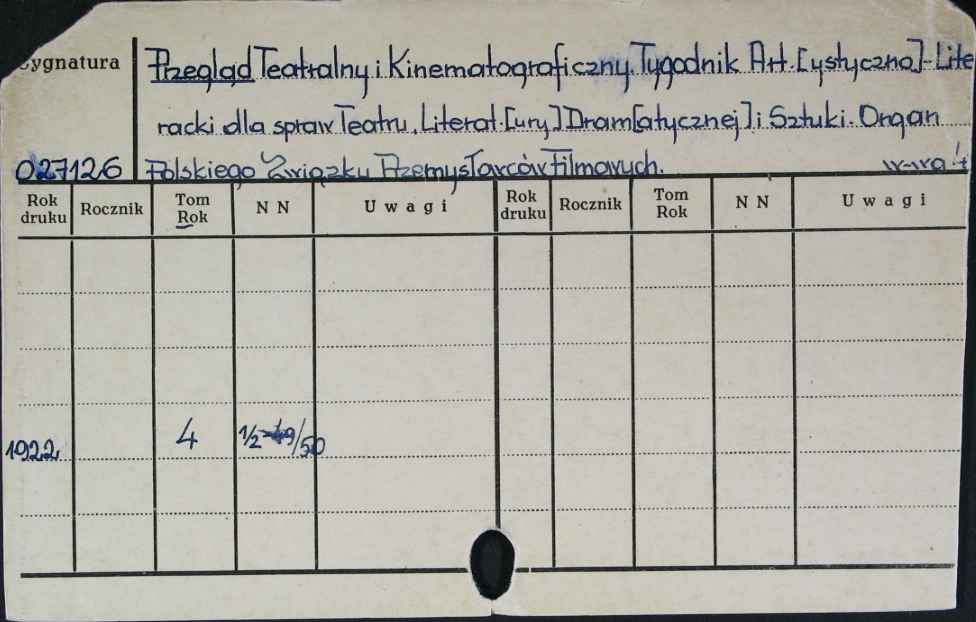 Sygnatura Przegląd Teatralny i Kinematograficzny. Tygodnik Art.[ystyczno]-Lite
racki dla spraw Teatru, Literat.[ury] Dram[atycznej] i Sztuki. Organ
027126 Polskiego Związku Przemysłowców Filmowych. W-wa! 4
Rok druku Rocznik Tom Rok N N Uwagi Rok druku Rocznik Tom Rok N N Uwagi
1922 4 1/2-49/50